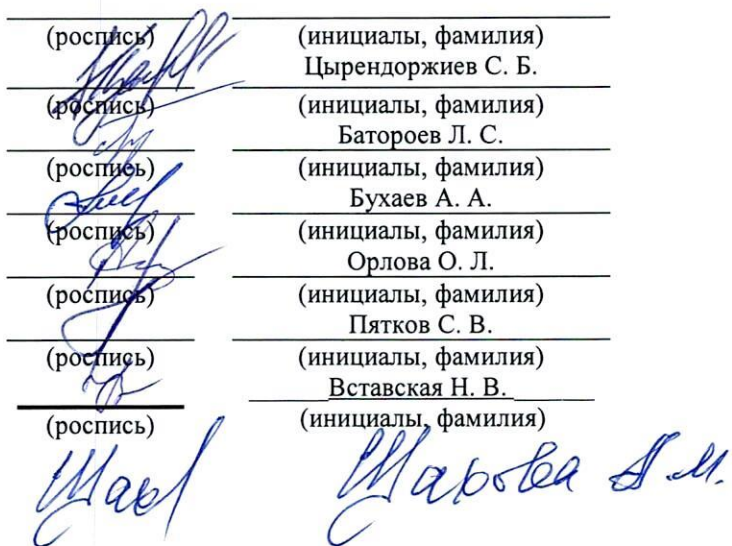 (роспись) (инициалы, фамилия)
Цырендоржиев С. Б.
(роспись) (инициалы, фамилия)
Батороев Л. С.
(роспись) (инициалы, фамилия)
Бухаев А. А.
(роспись) (инициалы, фамилия)
Орлова О. Л.
(роспись) (инициалы, фамилия)
Пятков С. В.
(роспись) (инициалы, фамилия)
Вставская Н. В.
(роспись) (инициалы, фамилия)